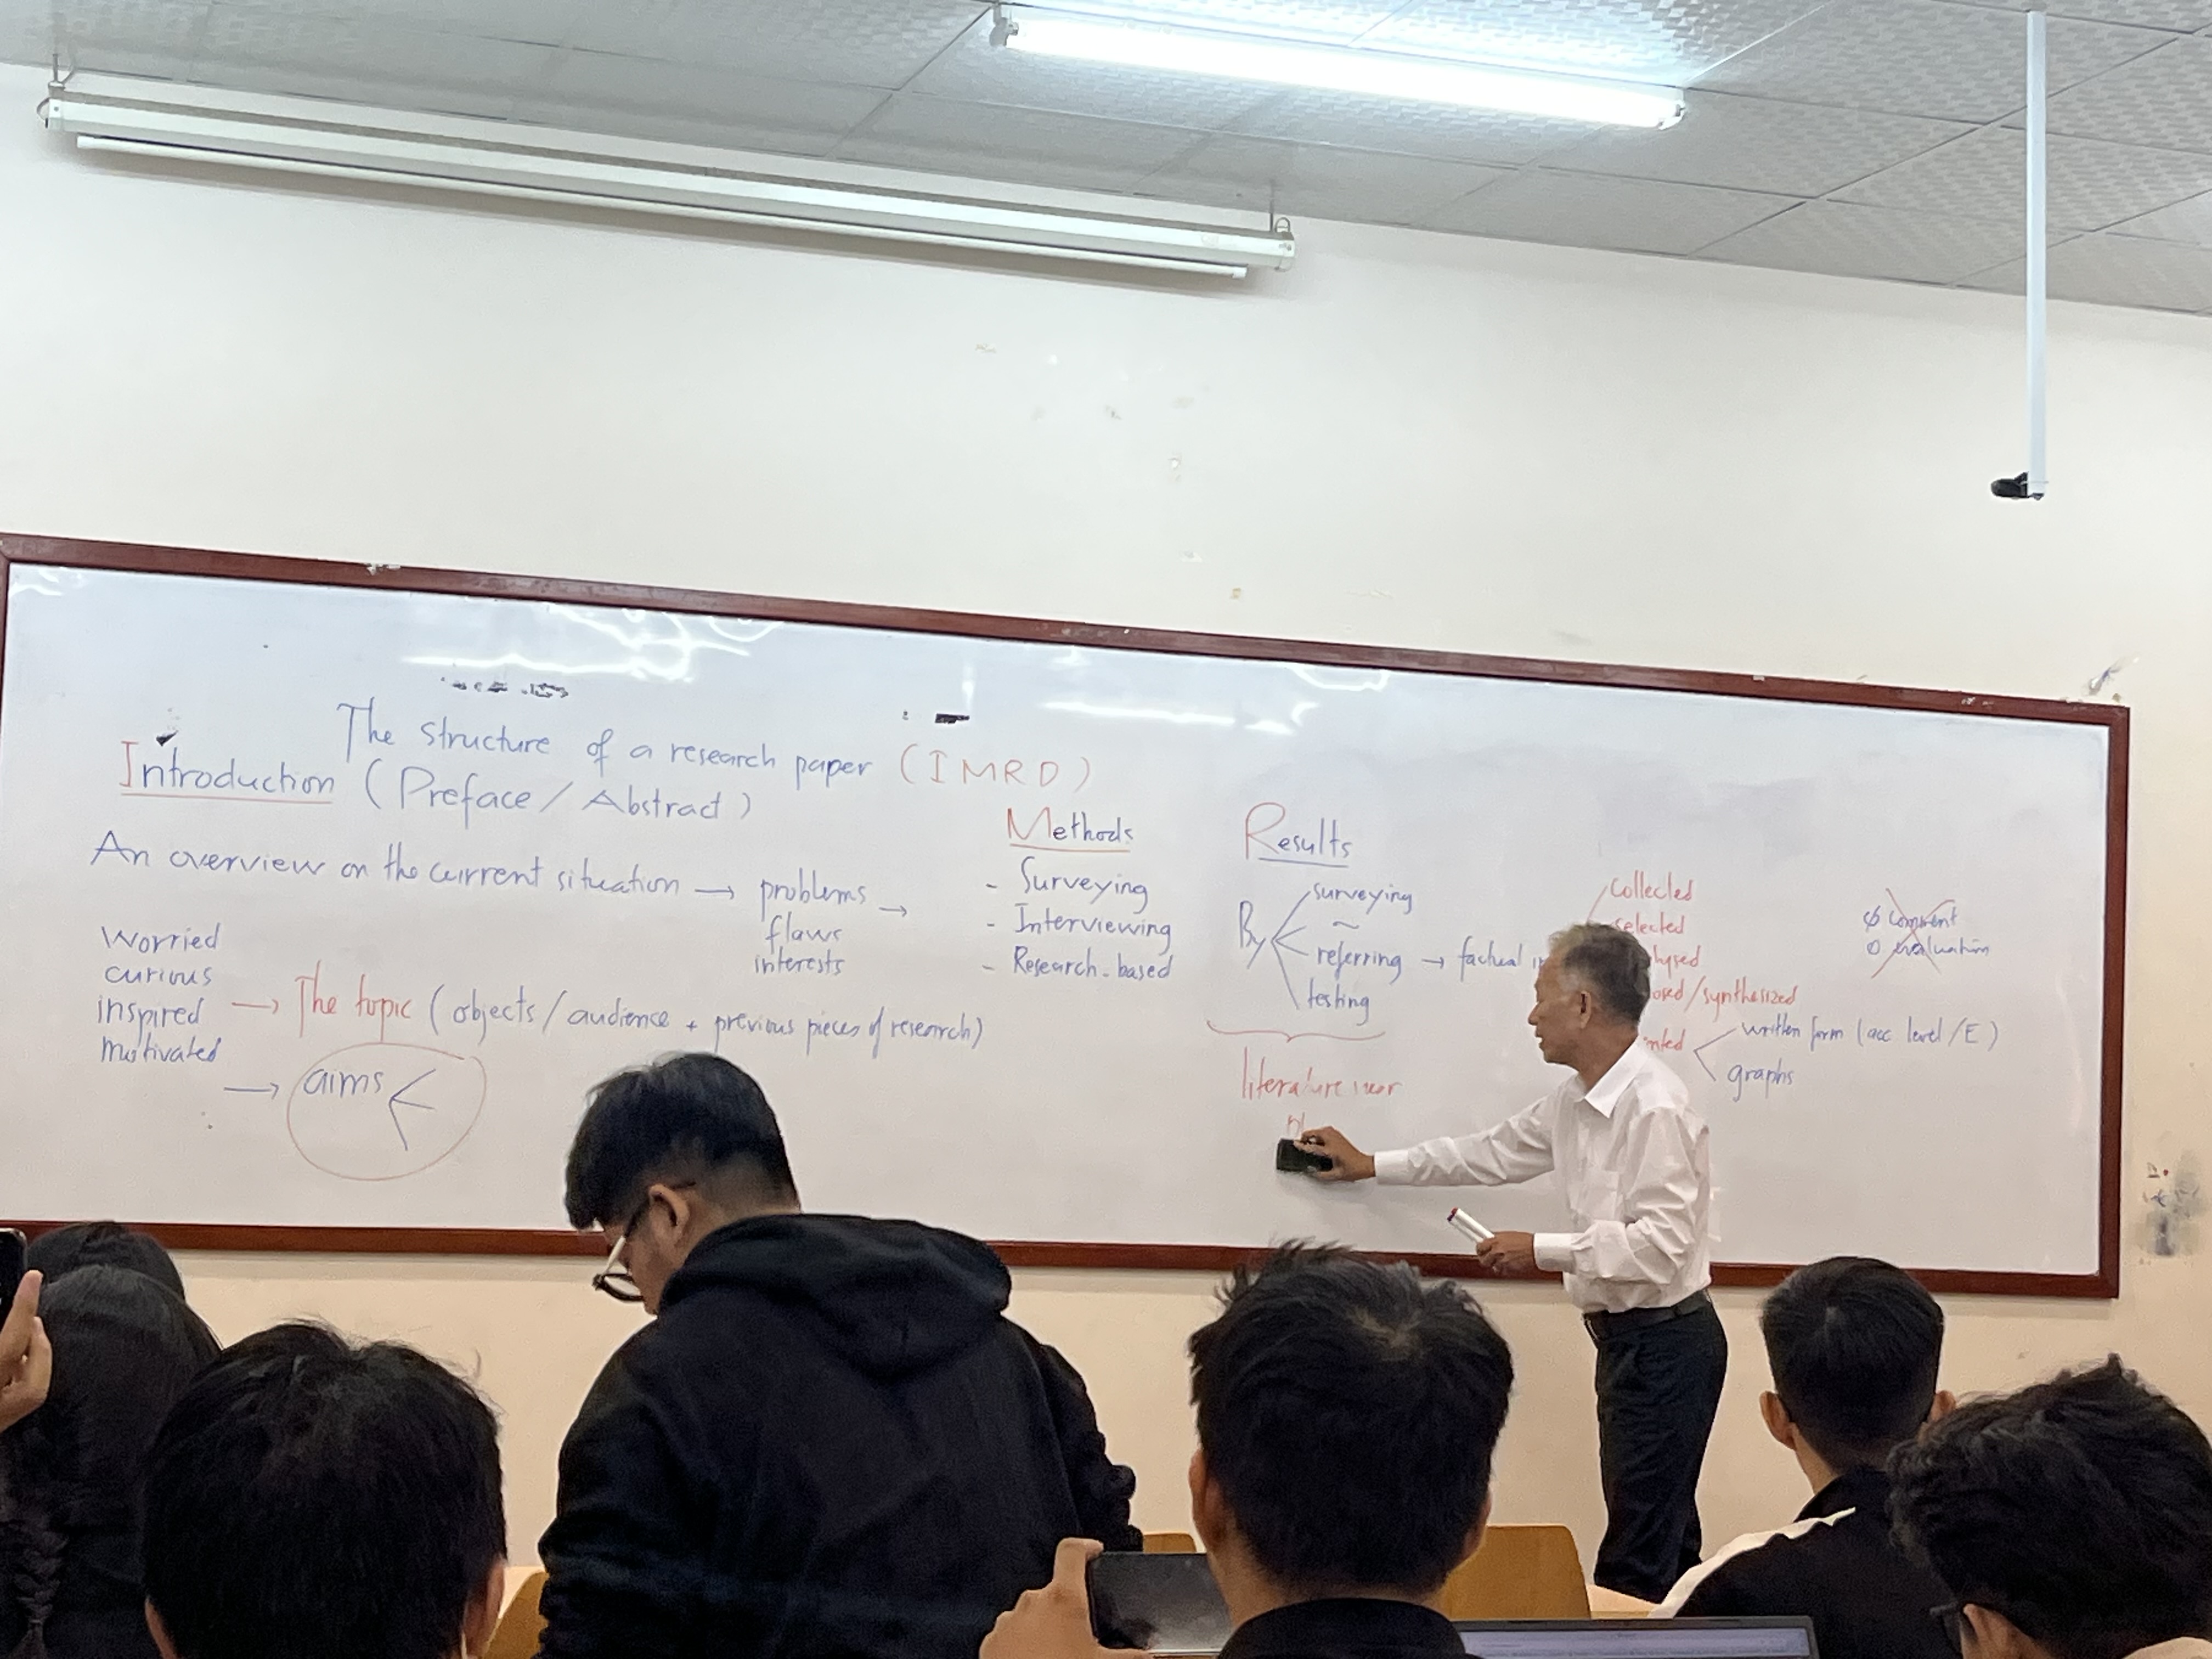 The structure of a research paper (IMRD)
Introduction (Preface / Abstract)
An overview on the current situation → problems →
flaws
interests
Worried
curious
inspired → The topic (objects / audience + previous pieces of research)
motivated
→ aims
Methods
- Surveying
- Interviewing
- Research-based
Results
By surveying
~
referring → factual
testing
literature
collected
selected
/synthesized
written form (acc level / E)
graphs
comment
evaluation